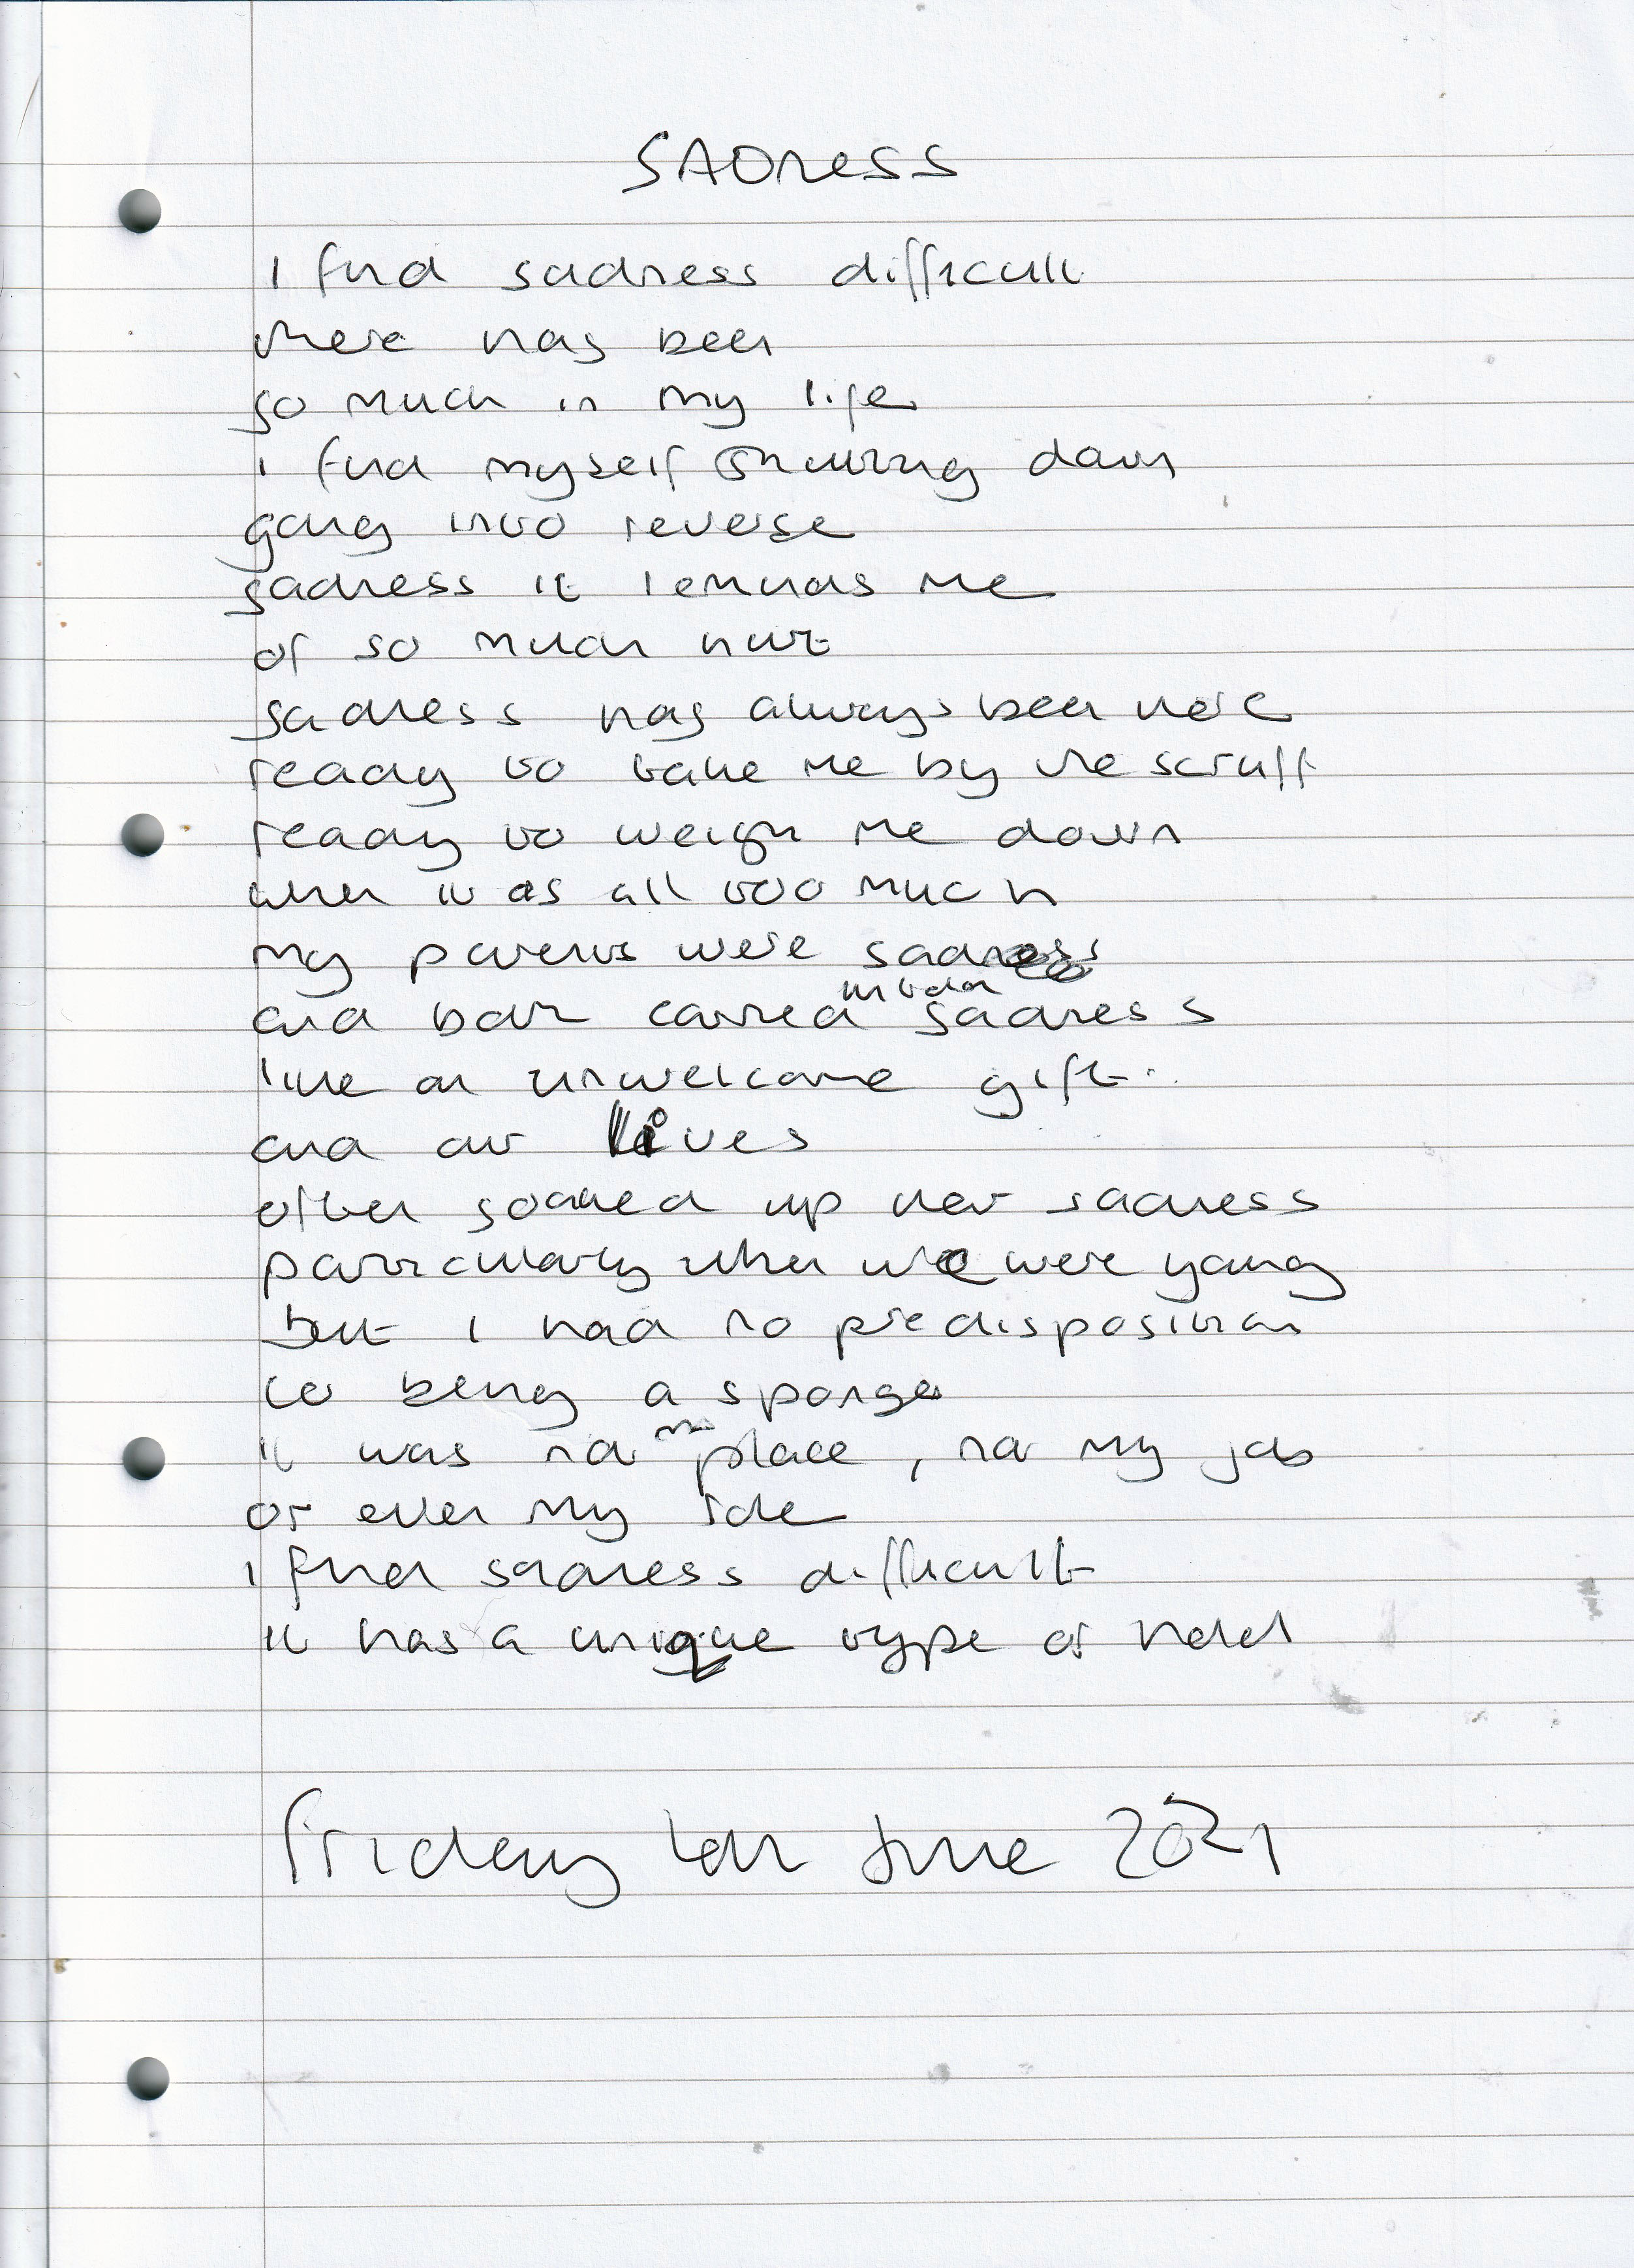 SADness
I find sadness difficult
there has been
so much in my life
I find myself shutting down
going into reverse
sadness it reminds me
of so much hurt
sadness has always been here
ready to take me by the scruff
ready to weigh me down
when it as all too much
my parents were sadness
and both carried sadness
like an unwelcome gift.
and our lives
often soaked up their sadness
particularly when we were young
but I had no predisposition
to being a sponge
it was not my place, not my job
or even my role
I find sadness difficult
it has a unique type of hold
Friday June 2021